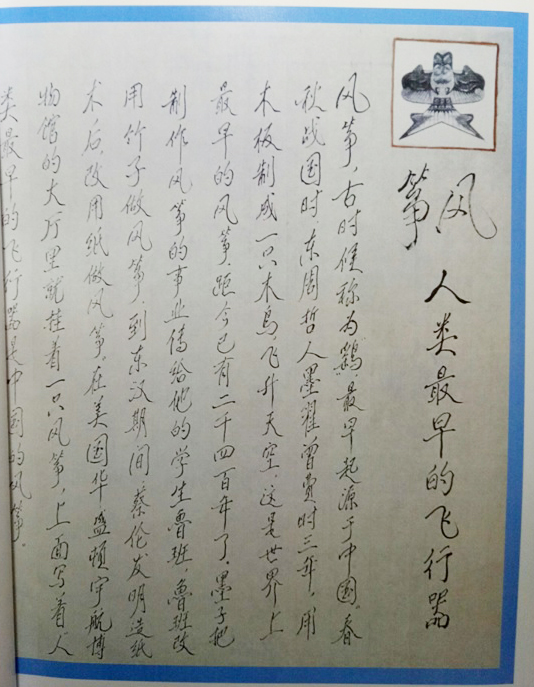 风筝
人类最早的飞行器
风筝，古时候称为鹞，最早起源于中国。春
秋战国时，东周哲人墨翟曾费时三年，用
木板制成一只木鸟，飞升天空，这是世界上
最早的风筝，距今已有二千四百年了。墨子把
制作风筝的事业传给他的学生鲁班，鲁班改
用竹子做风筝，到东汉期间，蔡伦发明造纸
术后，改用纸做风筝，在美国华盛顿宇航博
物馆的大厅里就挂着一只风筝，上面写着人
类最早的飞行器是中国的风筝。